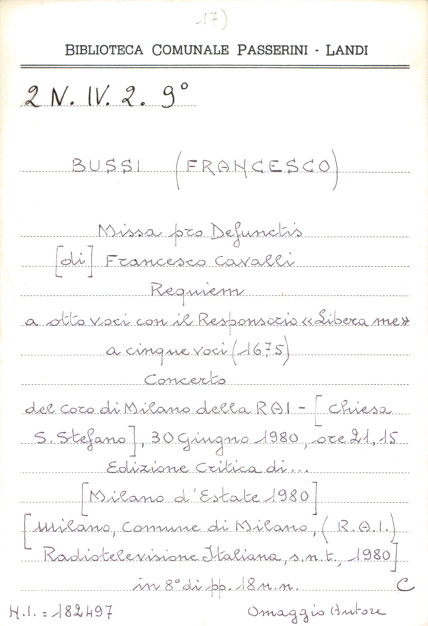 17)
BIBLIOTECA COMUNALE PASSERINI - LANDI
2 N. IV. 2. 9°
BUSSI (FRANCESCO)
Missa pro Defunctis
[di] Francesco Cavalli
Requiem
a otto voci con il Responsorio «Libera me»
a cinque voci (1675)
Concerto
del coro di Milano della RAI - [Chiesa
S. Stefano], 30 Giugno 1980, ore 21,15
Edizione Critica di...
[Milano d'Estate 1980]
[Milano, Comune di Milano, (R.A.I.)
Radiotelevisione Italiana, s.n.t., 1980]
in 8° di pp. 18 n.n.
C
N.I.: 182497 Omaggio Autore